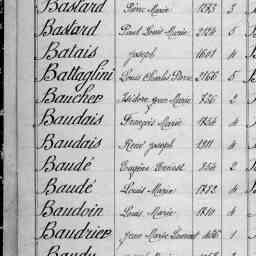 Bastard Pierre Marie 1273 3
Bastard Paul Louis Marie 2124 5
Batais Joseph 1601 4
Battaglini Louis Charles Pierre 2166 5
Baucher Isidore Jean Marie 736 2
Baudais François Marie 1254 4
Baudais René Joseph 1911 4
Baudé Eugène Ernest 354 2
Baudé Louis Marie 1782 4
Baudoin Louis Marie 1810 4
Baudrier Jean Marie 1